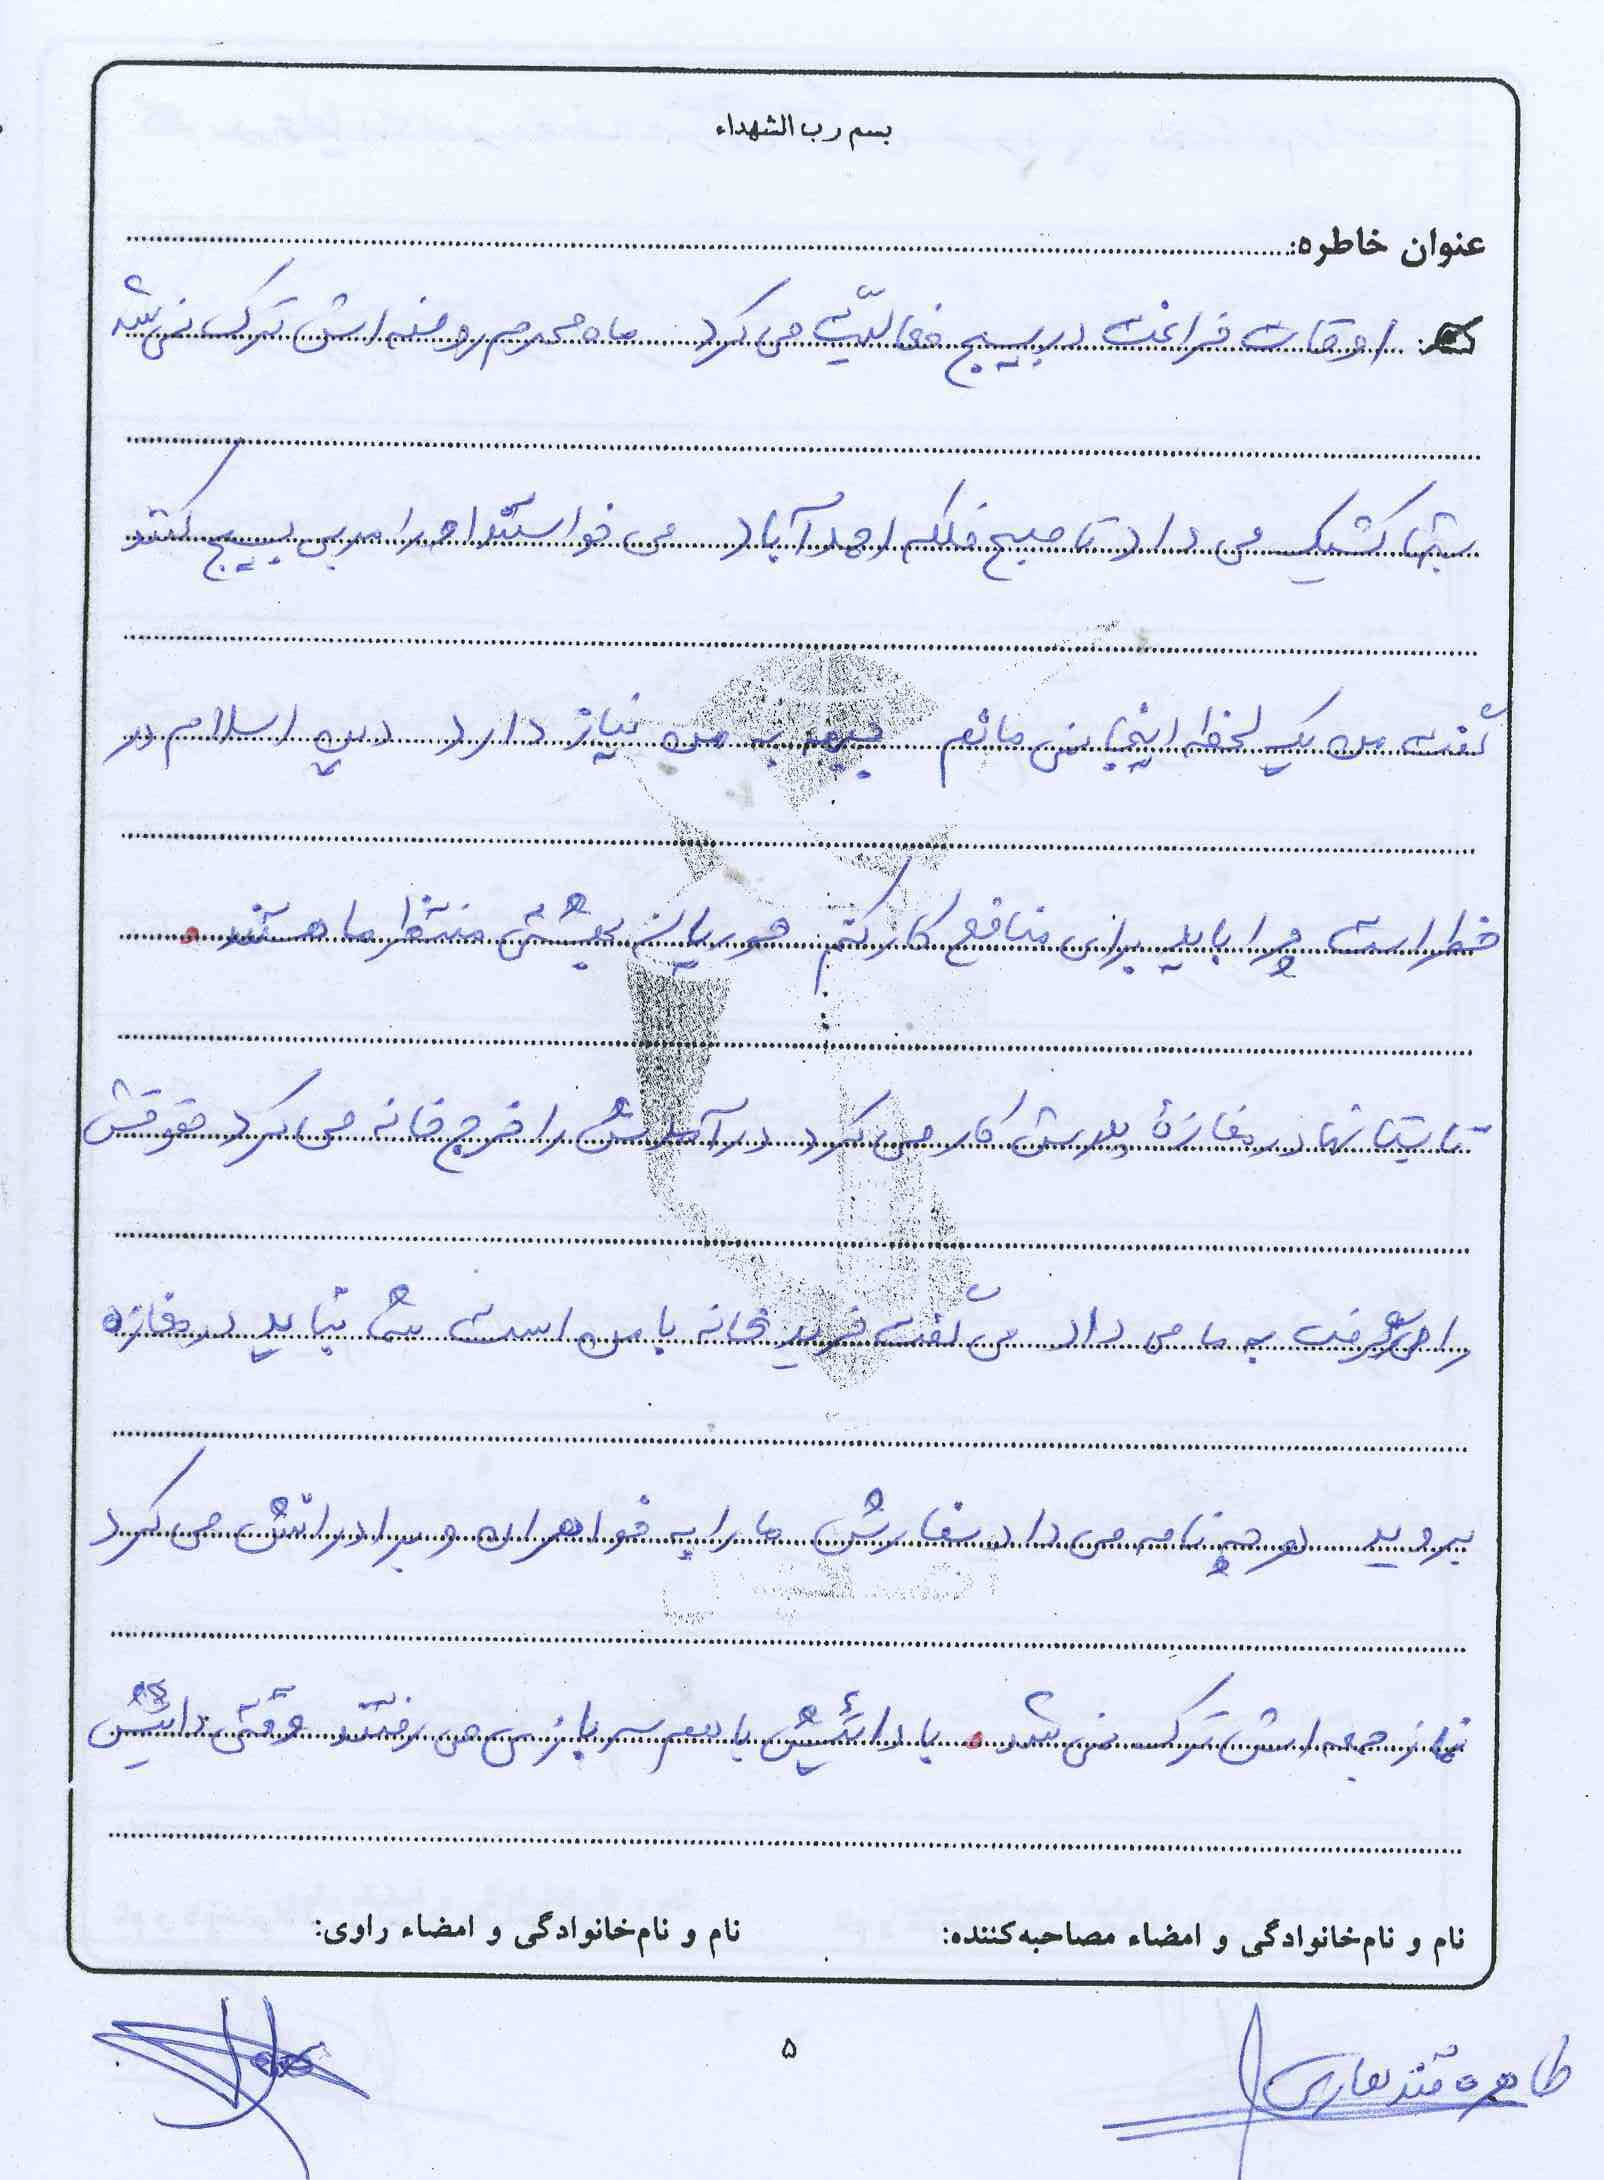 بسم رب الشهداء
عنوان خاطره:
اوقات فراغت در بسیج فعالیّت می کرد ماه محرم روضه اش ترک نمی شد
شبها کشیک می داد تا صبح فلکه احمدآباد می خواستند او را مربی بسیج کنند
گفت من یک لحظه اینجا نمی مانم جبهه به من نیاز دارد دین اسلام در
خطر است چرا باید برای منافع کار کنم حوریان بهشتی منتظر ما هستند.
تابستانها در مغازهٔ پدرش کار می کرد درآمدش را خرج خانه می کرد حقوقش
را می گرفت به ما می داد می گفت خرید خانه با من است شما نباید در مغازه
بروید هر چه نامه می داد سفارش ما را به خواهران و برادرانش می کرد
نماز جمعه اش ترک نمی شد. با دائیش با هم سربازی می رفتند وقتی دائیش
نام و نام‌خانوادگی و امضاء مصاحبه‌کننده: نام و نام‌خانوادگی و امضاء راوی:
طاهره قندهاری
۵